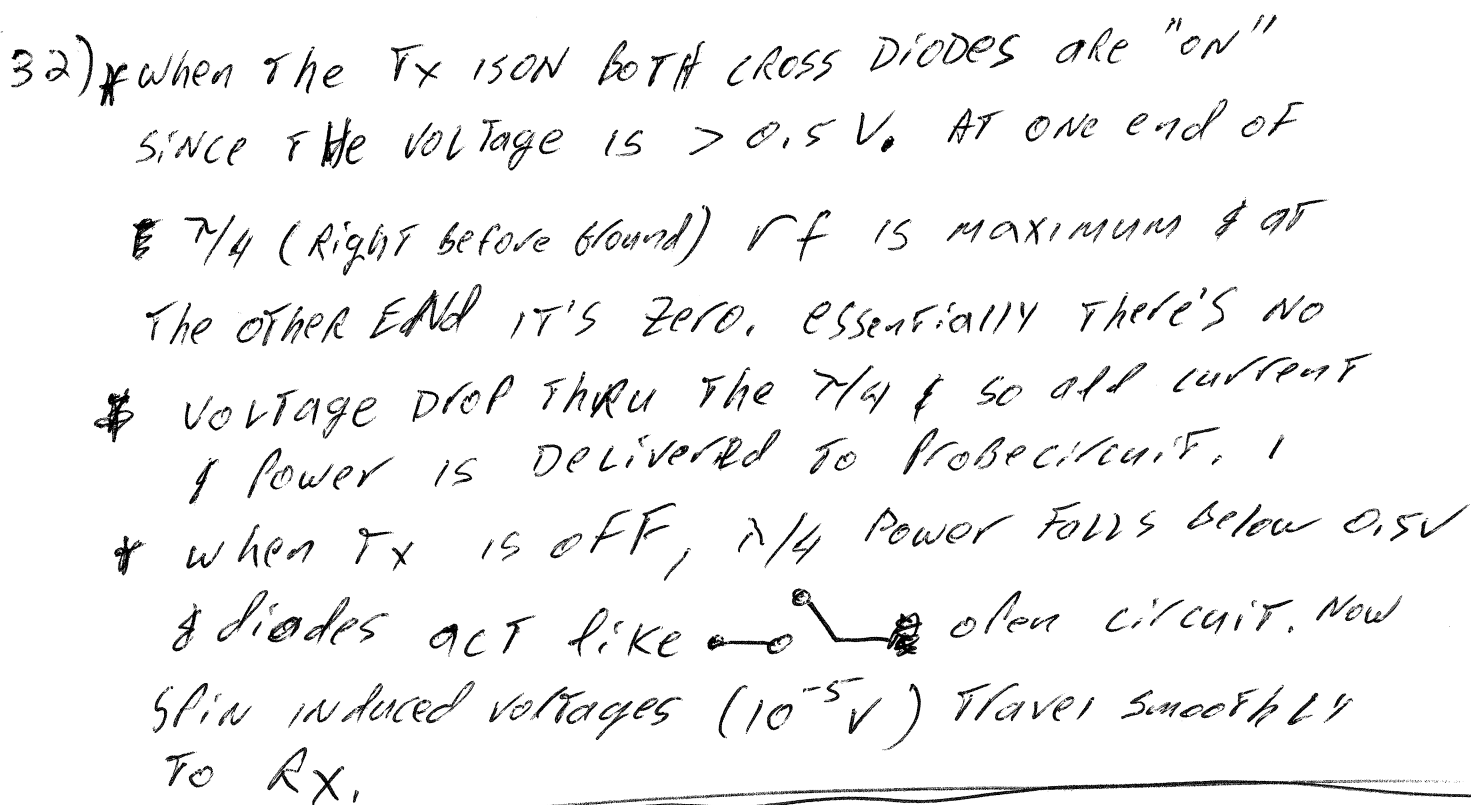 32) * When The Tx IS ON BOTH CROSS DiODes aRe "ON"
SiNCe THe VOLTage IS > 0.5 V. AT ONe end OF
λ/4 (RighT Before Ground) rf IS MaXIMUM & aT
The OTHeR ENd IT'S Zero. essenTially There'S NO
VOLTage DrOP ThRu The λ/4 & SO all currenT
& Power IS DeLiveRed To ProBecircuiT.
* when Tx IS OFF, λ/4 Power FallS Below 0.5V
& diodes acT liKe open circuiT. Now
SPiN INduced volTages (10⁻⁵V) Travel SmooThLy
To Rx.